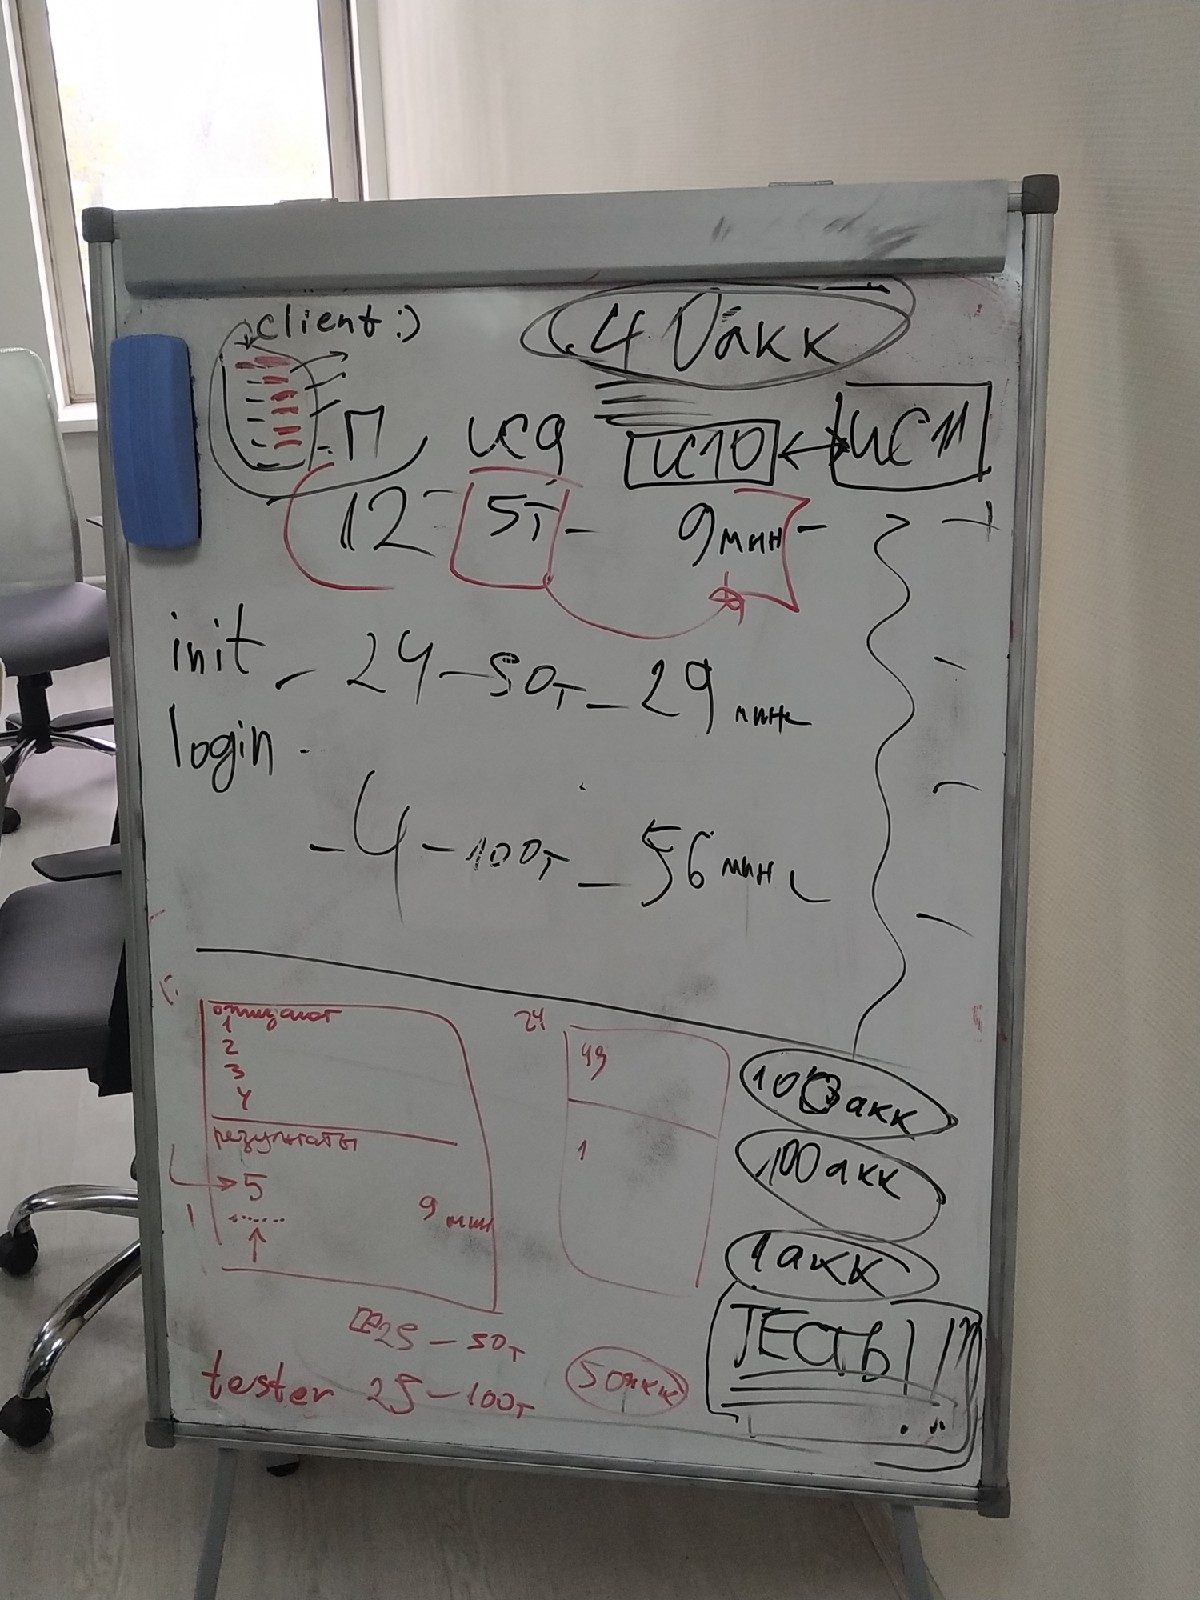 client :)
40акк
П ИС9 ИС10 ИС11
12 - 5т - 9мин -
init - 24 - 50т - 29 мин
login - 
- 4 - 100т - 56 мин
1
2
3
4
результаты
5
1
9 мин
24
49
1
100акк
100акк
1акк
ТЕСТЫ
25 - 50т
tester 25 - 100т
50акк